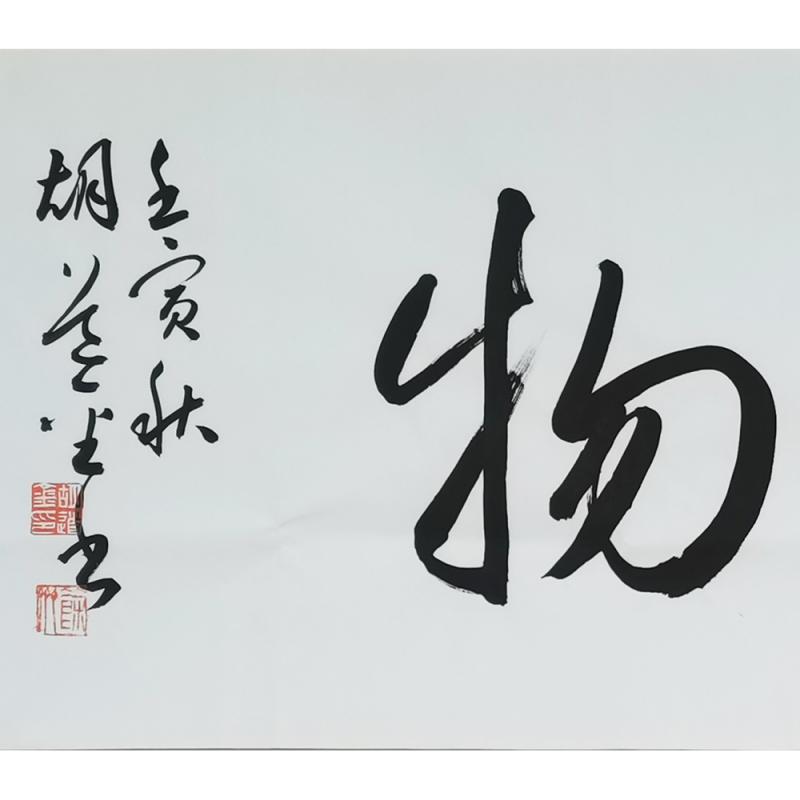 物
壬寅秋
胡道书